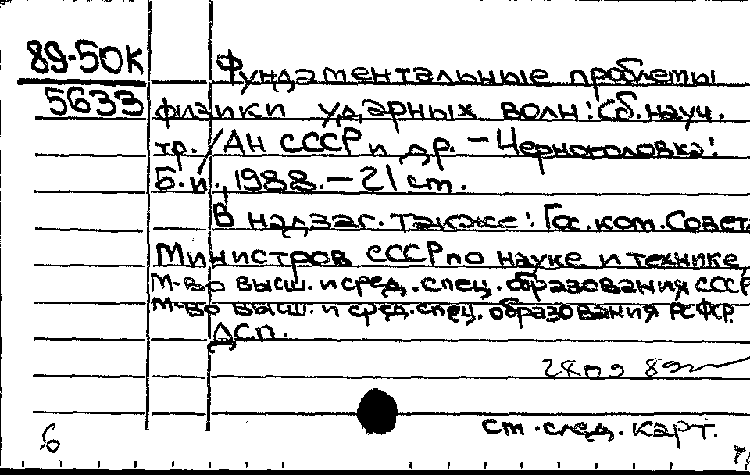 89-50К
5633
Фундаментальные проблемы
физики ударных волн: Сб. науч.
тр. / АН СССР и др. - Черноголовка:
Б.и., 1988. - 21 ст.
В надзаг. также: Гос. ком. Совета
Министров СССР по науке и технике,
М-во высш. и сред. спец. образования СССР
М-во высш. и сред. спец. образования РСФСР.
ДСП.
ст. след. карт.
6